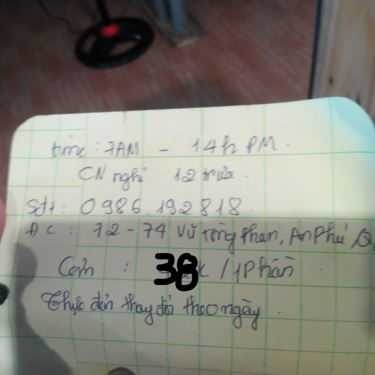 time : 7AM - 14h PM.
CN nghỉ 12 trưa.
Sđt : 0986 192818
ĐC : 72 - 74 Vũ Tông Phan, An Phú, Q
Cơm : 38k / 1 Phần
Thực đơn thay đổi theo ngày.